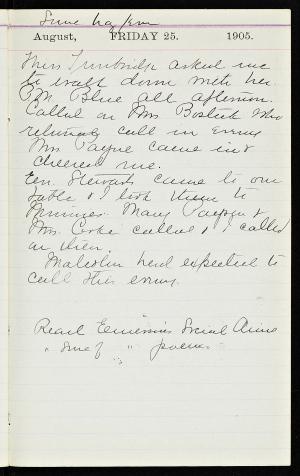 August, FRIDAY 25. 1905.
Miss Trowbridge asked me
to walk down with her.
P.M. Blue all afternoon.
Called on Mrs Bostick who
returned call in eveng
Mrs Payne came in &
cheered me.
Gen. Stewart came to our
table & I took them to
Mary Payson &
Mrs. Cooke called & I called
on them.
Malcolm had expected to
call this eveng.
Read Emersons Social Aims
" some of " poems